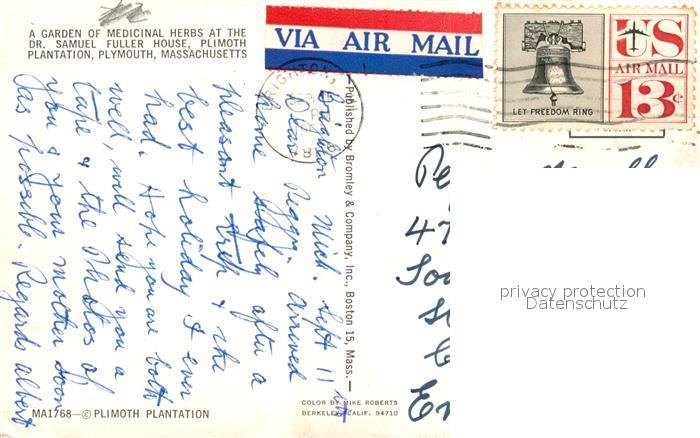 A GARDEN OF MEDICINAL HERBS AT THE
DR. SAMUEL FULLER HOUSE, PLIMOTH
PLANTATION, PLYMOUTH, MASSACHUSETTS
VIA AIR MAIL
US
AIR MAIL
13c
LET FREEDOM RING
Brighton Mich. Sept 11
Dear Peggy. Arrived
home safely after a
pleasant trip & the
best holiday I ever
had. Hope you are both
well, will send you a
Tape & the Photos of
you & your mother soon
as possible. Regards Albert
Published by Bromley & Company, Inc., Boston 15, Mass.
Pe
47
So
St
En
privacy protection
Datenschutz
COLOR BY MIKE ROBERTS
BERKELEY, CALIF. 94710
MA1768—© PLIMOTH PLANTATION